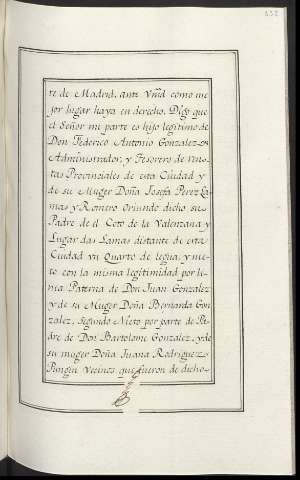 te de Madrid, ante Vmd como me
jor lugar haya en derecho, Digo que
el Señor mi parte es hijo legitimo de
Don Federico Antonio Gonzalez
Administrador, y Tesorero de Ren-
tas Provinciales de esta Ciudad y
de su Muger Doña Josefa Perez La-
mas y Romero Oriundo dicho su
Padre de el Coto de la Valenzana y
Lugar das Lamas distante de esta
Ciudad un Quarto de legua, y nie-
to con la misma legitimidad por li-
nia Paterna de Don Juan Gonzalez
y de su Muger Doña Bernarda Gon
zalez, Segundo Nieto por parte de Pa-
dre de Don Bartolome Gonzalez, y de
su muger Doña Juana Rodriguez
Pungin Vecinos que fueron de dicho